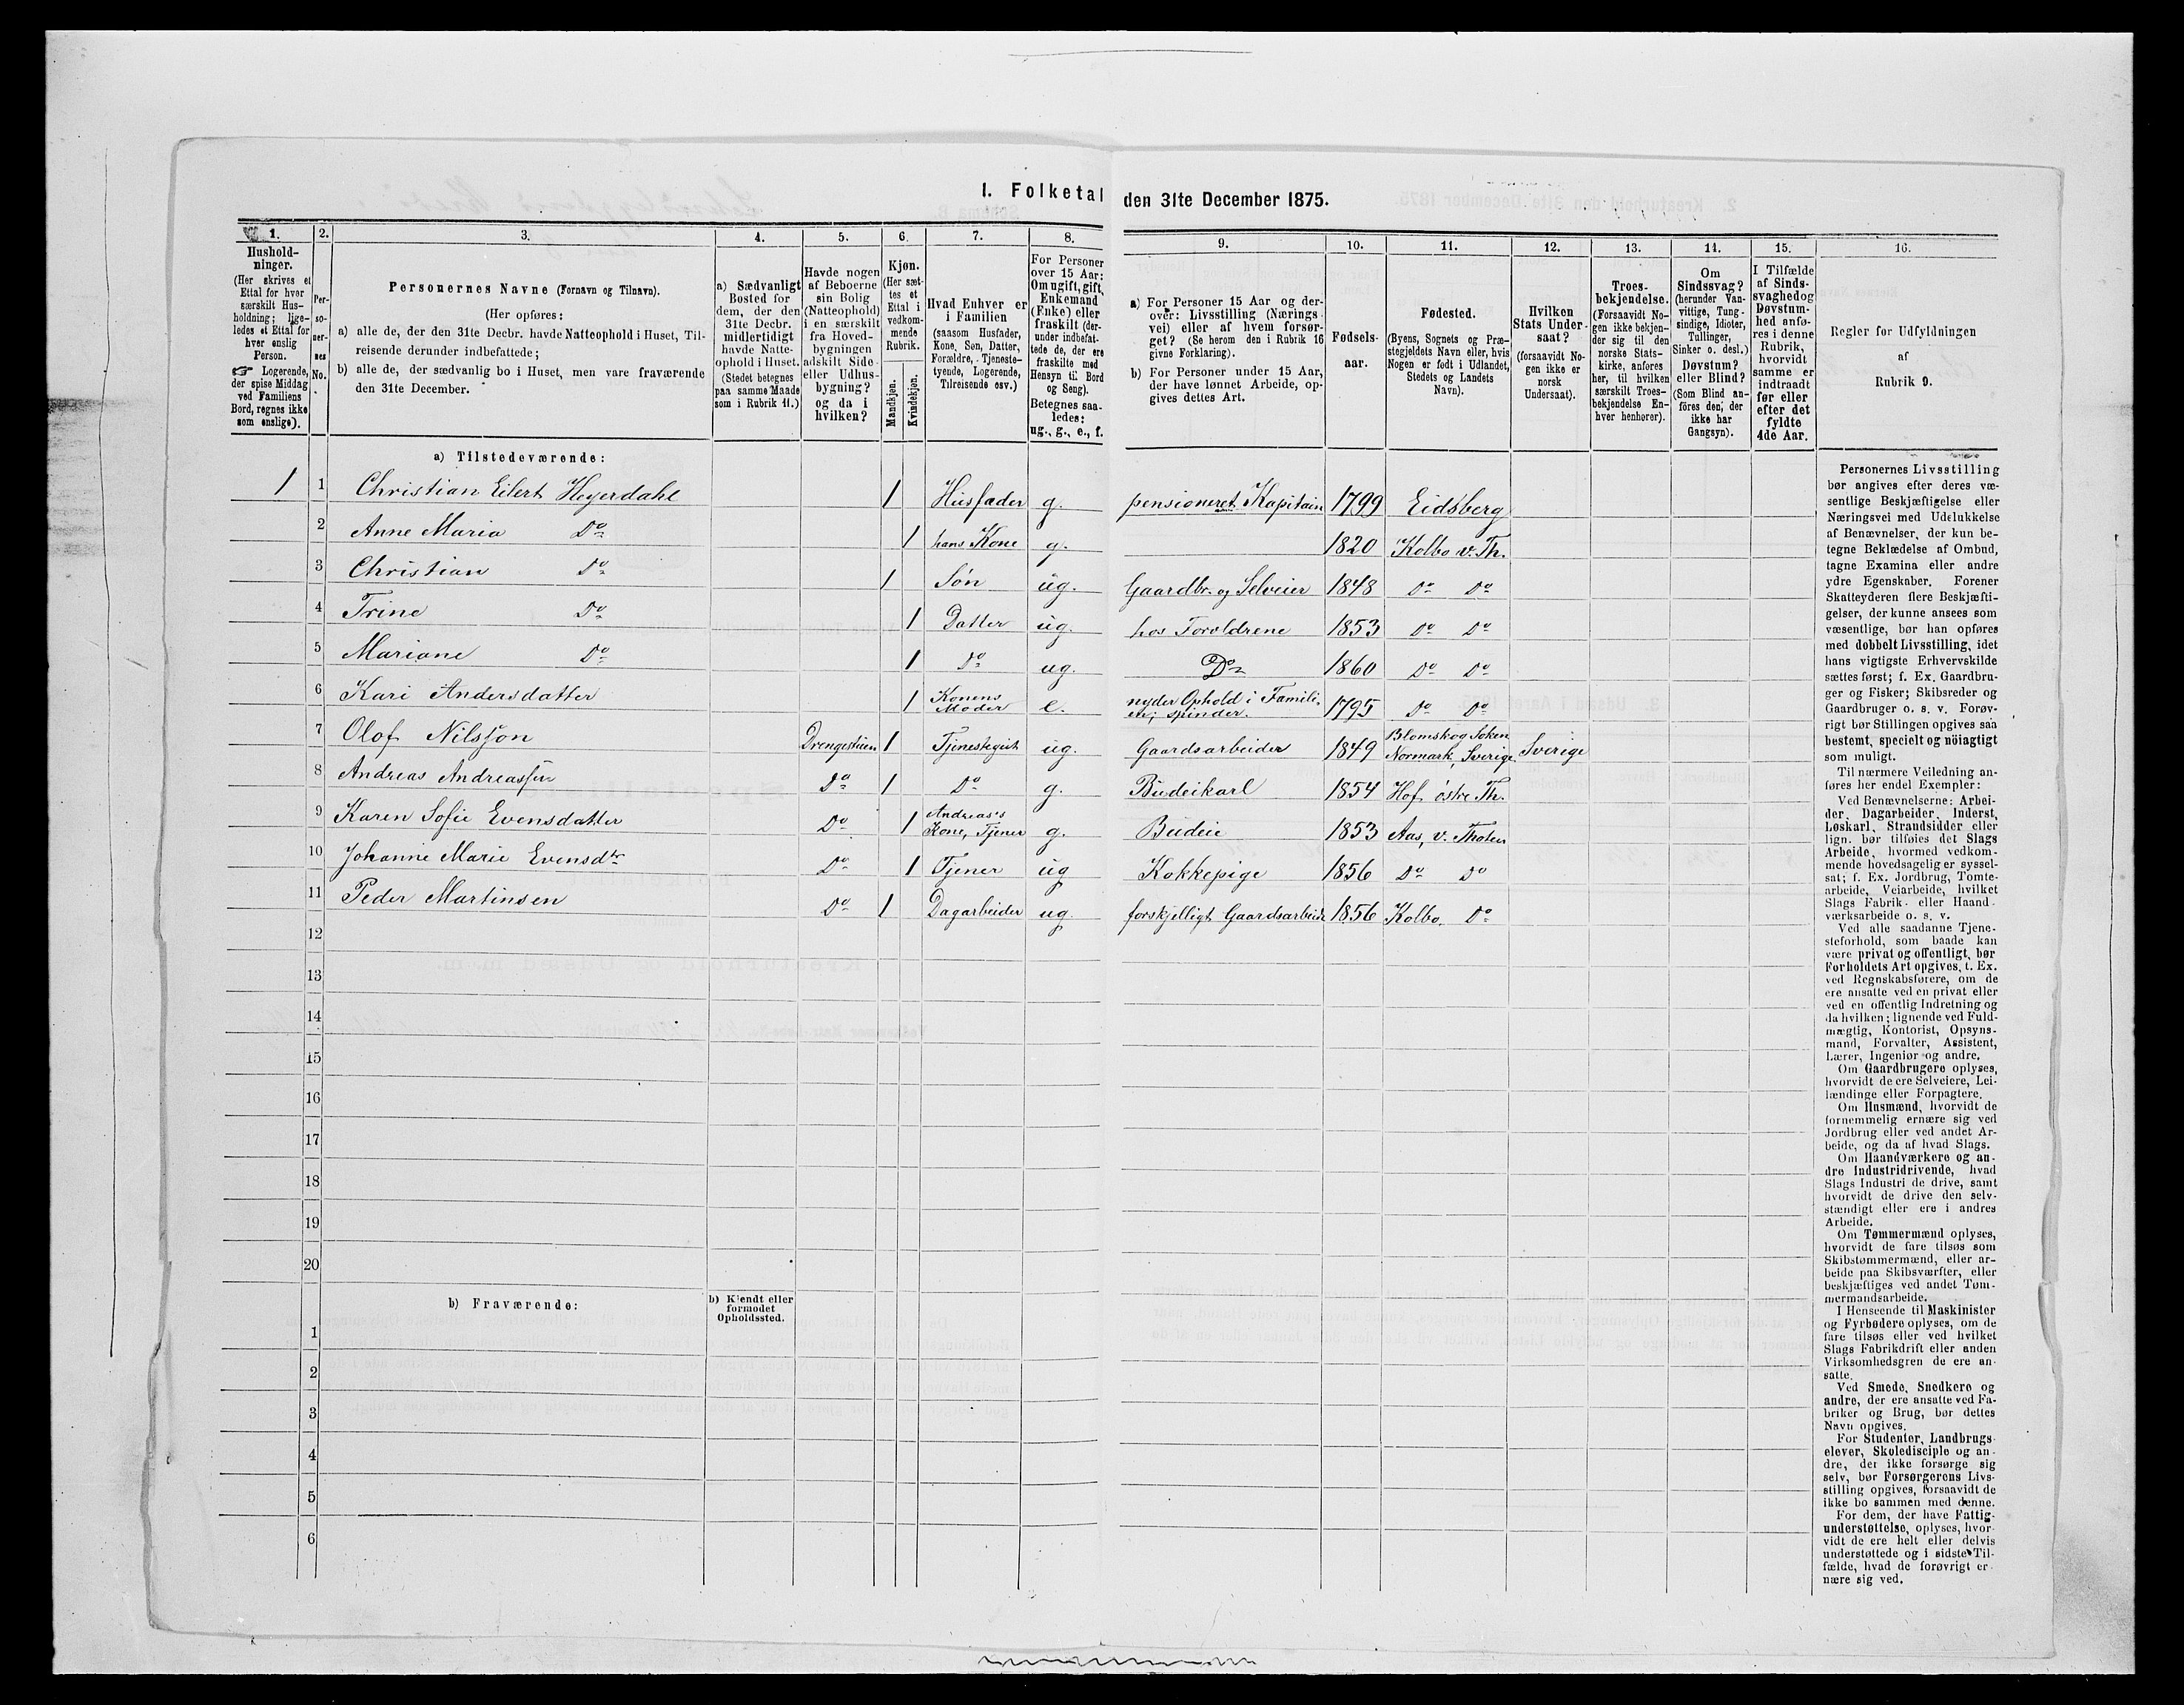 1. Folketal den 31te December 1875.
1.
Hushold-
ninger.
(Her skrives et
Ettal for hver
særskilt Hus-
holdning; lige-
ledes et Ettal for
hver enslig
Person.
☞ Logerende,
der spise Middag
ved Familiens
Bord, regnes ikke
som enslige).
2.
Per-
so-
ner-
nes
No.
3.
Personernes Navne (Fornavn og Tilnavn).
(Her opføres:
a) alle de, der den 31te Decbr. havde Natteophold i Huset, Til-
reisende derunder indbefattede;
b) alle de, der sædvanlig bo i Huset, men vare fraværende
den 31te December.
4.
a) Sædvanligt
Bosted for
dem, der den
31te Decbr.
midlertidigt
havde Natte-
ophold i Huset.
(Stedet betegnes
paa samme Maade
som i Rubrik 11.)
5.
Havde nogen
af Beboerne
sin Bolig
(Natteophold)
i en særskilt
fra Hoved-
bygningen
adskilt Side-
eller Udhus-
bygning?
og da i
hvilken?
6.
Kjøn.
(Her sæt-
tes et
Ettal i
vedkom-
mende
Rubrik.
Mandkjøn.
Kvindekjøn.
7.
Hvad Enhver er
i Familien
(saasom Husfader,
Kone, Søn, Datter,
Forældre, Tjeneste-
tyende, Logerende,
Tilreisende osv.)
8.
For Personer
over 15 Aar:
Om ugift, gift,
Enkemand
(Enke) eller
fraskilt (der-
under indbefat-
tede de, der ere
fraskilte med
Hensyn til Bord
og Seng).
Betegnes saa-
ledes:
ug., g., e., f.
9.
a) For Personer 15 Aar og der-
over: Livsstilling (Nærings-
vei) eller af hvem forsør-
get? (Se herom den i Rubrik 16
givne Forklaring).
b) For Personer under 15 Aar,
der have lønnet Arbeide, op-
gives dettes Art.
10.
Fødsels-
aar.
11.
Fødested.
(Byens, Sognets og Præ-
stegjeldets Navn eller, hvis
Nogen er født i Udlandet,
Stedets og Landets
Navn).
12.
Hvilken
Stats Under-
saat?
(forsaavidt No-
gen ikke er
norsk
Undersaat).
13.
Troes-
bekjendelse.
(Forsaavidt No-
gen ikke bekjen-
der sig til den
norske Stats-
kirke, anføres
her, til hvilken
særskilt Troes-
bekjendelse En-
hver henhører).
14.
Om
Sindssvag?
(herunder Van-
vittige, Tung-
sindige, Idioter,
Tullinger,
Sinker o. desl.)
Døvstum?
eller Blind?
(Som Blind an-
føres den, der
ikke har
Gangsyn).
15.
I Tilfælde
af Sinds-
svaghed og
Døvstum-
hed anfø-
res i denne
Rubrik,
hvorvidt
samme er
indtraadt
før eller
efter det
fyldte
4de Aar.
16.
Regler for Udfyldningen
af
Rubrik 9.
a) Tilstedeværende:
1 1 Christian Eilert Heyerdahl 1 Husfader g. pensioneret Kapitain 1799 Eidsberg
2 Anne Maria Do 1 hans Kone g. 1820 Kolbo v. Th.
3 Christian Do 1 Søn ug. Gaardbr. og Selveier 1848 Do Do
4 Trine Do 1 Datter ug. hos Forældrene 1853 Do Do
5 Mariane Do 1 Do ug. Do 1860 Do Do
6 Kari Andersdatter 1 Konens Moder e. nyder Ophold i Famili-
en; spinder. 1795 Do Do
7 Olof Nilsson Drengestuen 1 Tjenestegut ug. Gaardsarbeider 1849 Blomskog Soken
Normark, Sverige. Sverige
8 Andreas Andreassen Do 1 Do g. Budeikarl 1854 Hof østre Th.
9 Karen Sofie Evensdatter Do 1 Andreas's
Kone, Tjener g. Budeie 1853 Aas, v. Thoten
10 Johanne Marie Evensdtr Do 1 Tjener ug Kokkepige 1856 Do Do
11 Peder Martinsen Do 1 Dagarbeider ug. forskjelligt Gaardsarbeide 1856 Kolbo. Do
12
13
14
15
16
17
18
19
20
b) Fraværende:
b) Kjendt eller
formodet
Opholdssted.
1
2
3
4
5
6
Personernes Livsstilling
bør angives efter deres væ-
sentlige Beskjæftigelse eller
Næringsvei med Udelukkelse
af Benævnelser, der kun be-
tegne Beklædelse af Ombud,
tagne Examina eller andre
ydre Egenskaber. Forener
Skatteyderen flere Beskjæfti-
gelser, der kunne ansees som
væsentlige, bør han opføres
med dobbelt Livsstilling, idet
hans vigtigste Erhvervskilde
sættes først; f. Ex. Gaardbru-
ger og Fisker; Skibsreder og
Gaardbruger o. s. v. Forøv-
rigt bør Stillingen opgives saa
bestemt, specielt og nöiagtigt
som muligt.
Til nærmere Veiledning an-
føres her endel Exempler:
Ved Benævnelserne: Arbei-
der, Dagarbeider, Inderst,
Løskarl, Strandsidder eller
lign. bør tilføies det Slags
Arbeide, hvormed vedkom-
mende hovedsagelig er syssel-
sat; f. Ex. Jordbrug, Tomte-
arbeide, Veiarbeide, hvilket
Slags Fabrik- eller Haand-
værksarbeide o. s. v.
Ved alle saadanne Tjene-
steforhold, som baade kan
være privat og offentligt, bør
Forholdets Art opgives, t. Ex.
ved Regnskabsførere, om de
ere ansatte ved en privat eller
ved en offentlig Indretning og
da hvilken; lignende ved Fuld-
mægtig, Kontorist, Opsyns-
mand, Forvalter, Assistent,
Lærer, Ingeniør og andre.
Om Gaardbrugere oplyses,
hvorvidt de ere Selveiere, Lei-
lændinge eller Forpagtere.
Om Husmænd, hvorvidt de
fornemmelig ernære sig ved
Jordbrug eller ved andet Ar-
beide, og da af hvad Slags.
Om Haandværkere og an-
dre Industridrivende, hvad
Slags Industri de drive, samt
hvorvidt de drive den selv-
stændigt eller ere i andres
Arbeide.
Om Tømmermænd oplyses,
hvorvidt de fare tilsøs som
Skibstømmermænd, eller ar-
beide paa Skibsværfter, eller
beskjæftiges ved andet Tøm-
mermandsarbeide.
I Henseende til Maskinister
og Fyrbødere oplyses, om de
fare tilsøs eller ved hvilket
Slags Fabrikdrift eller anden
Virksomhedsgren de ere an-
satte.
Ved Smede, Snedkere og
andre, der ere ansatte ved Fa-
briker og Brug, bør dettes
Navn opgives.
For Studenter, Landbrugs-
elever, Skoledisciple og an-
dre, der ikke forsørge sig
selv, bør Forsørgerens Livs-
stilling opgives, forsaavidt de
ikke bo sammen med denne.
For dem, der have Fattig-
understøttelse, oplyses, hvor-
vidt de ere helt eller delvis
understøttede og i sidste Til-
fælde, hvad de forøvrigt er-
nære sig ved.